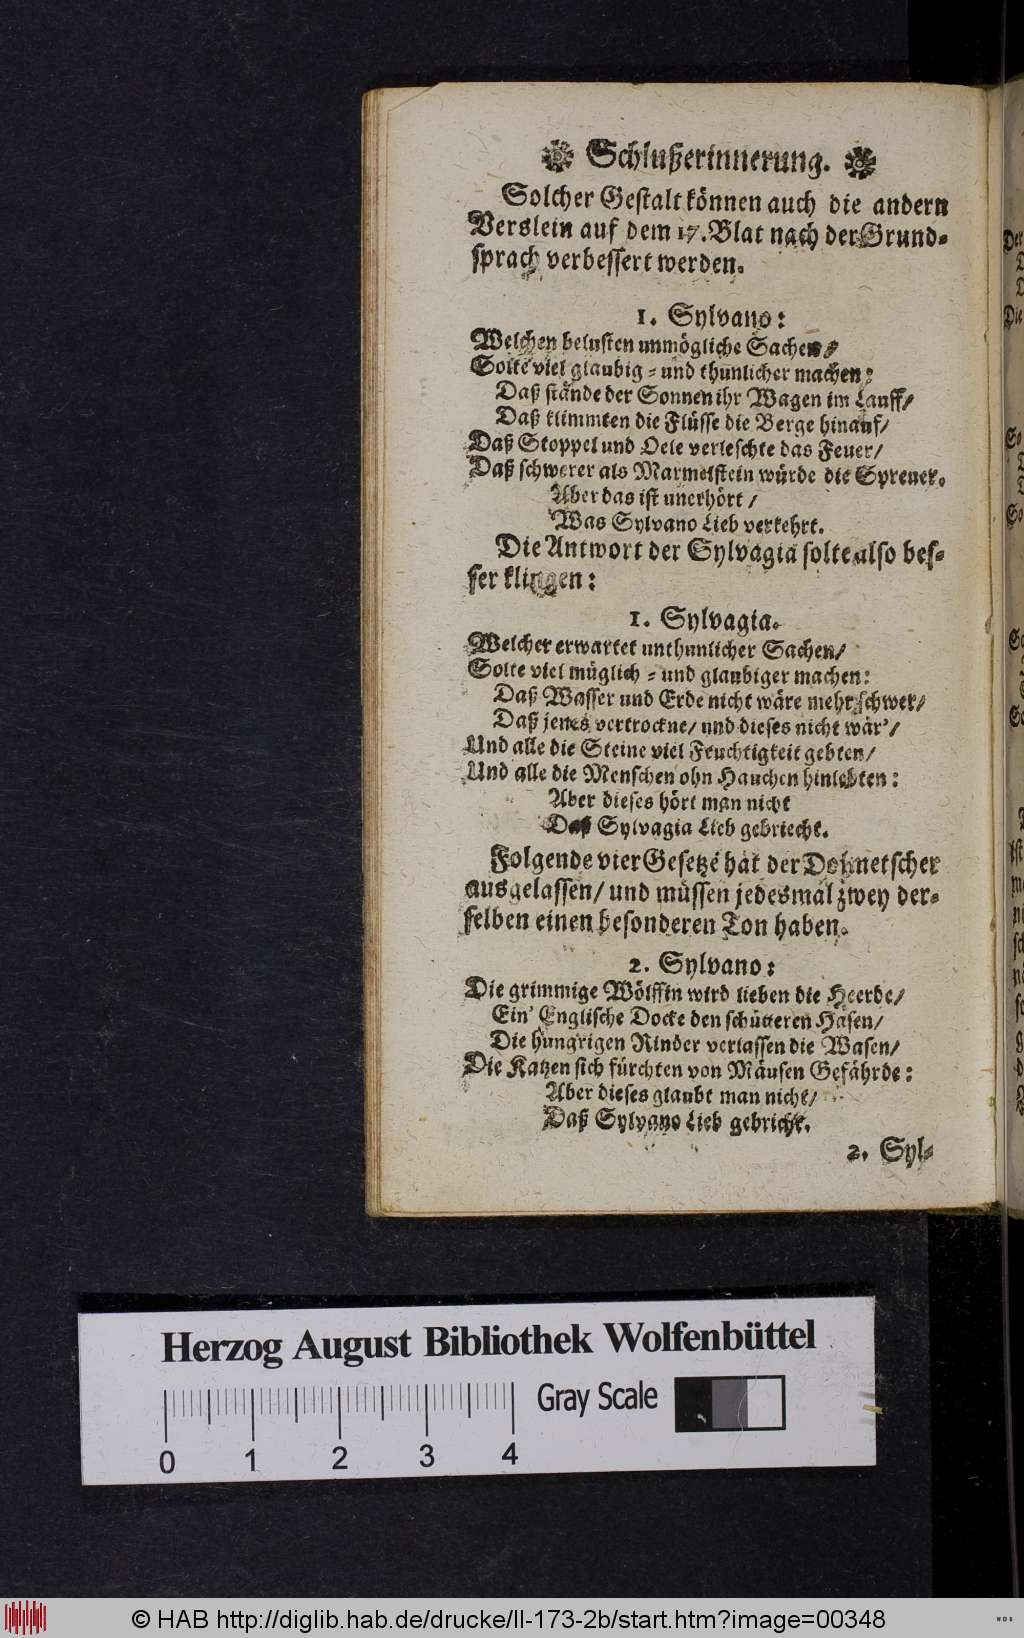 Schlußerinnerung.
Solcher Gestalt können auch die andern
Verslein auf dem 17. Blat nach der Grund-
sprach verbessert werden.
1. Sylvano:
Welchen belusten unmögliche Sachen/
Solte viel glaubig- und thunlicher machen:
Daß stände der Sonnen ihr Wagen im Lauff/
Daß klimmten die Flüsse die Berge hinauf/
Daß Stoppel und Oele verleschte das Feuer/
Daß schwerer als Marmelstein würde die Spreuer.
Aber das ist unerhört/
Was Sylvano Lieb verkehrt.
Die Antwort der Sylvagia solte also bes-
ser klingen:
1. Sylvagia.
Welcher erwartet unthunlicher Sachen/
Solte viel müglich- und glaubiger machen:
Daß Wasser und Erde nicht wäre mehr schwer/
Daß jenes vertrockne/ und dieses nicht wär'/
Und alle die Steine viel Feuchtigkeit gebten/
Und alle die Menschen ohn Hauchen hinlebten:
Aber dieses hört man nicht
Daß Sylvagia Lieb gebriecht.
Folgende vier Gesetze hat der Dolmetscher
ausgelassen/ und müssen jedesmal zwey der-
selben einen besonderen Ton haben.
2. Sylvano:
Die grimmige Wölffin wird lieben die Heerde/
Ein' Englische Docke den schütteren Hasen/
Die hungrigen Rinder verlassen die Wasen/
Die Katzen sich fürchten von Mäusen Gefährde:
Aber dieses glaubt man nicht/
Daß Sylvano Lieb gebricht.
2. Syl-
Herzog August Bibliothek Wolfenbüttel
Gray Scale
0 1 2 3 4
© HAB http://diglib.hab.de/drucke/ll-173-2b/start.htm?image=00348